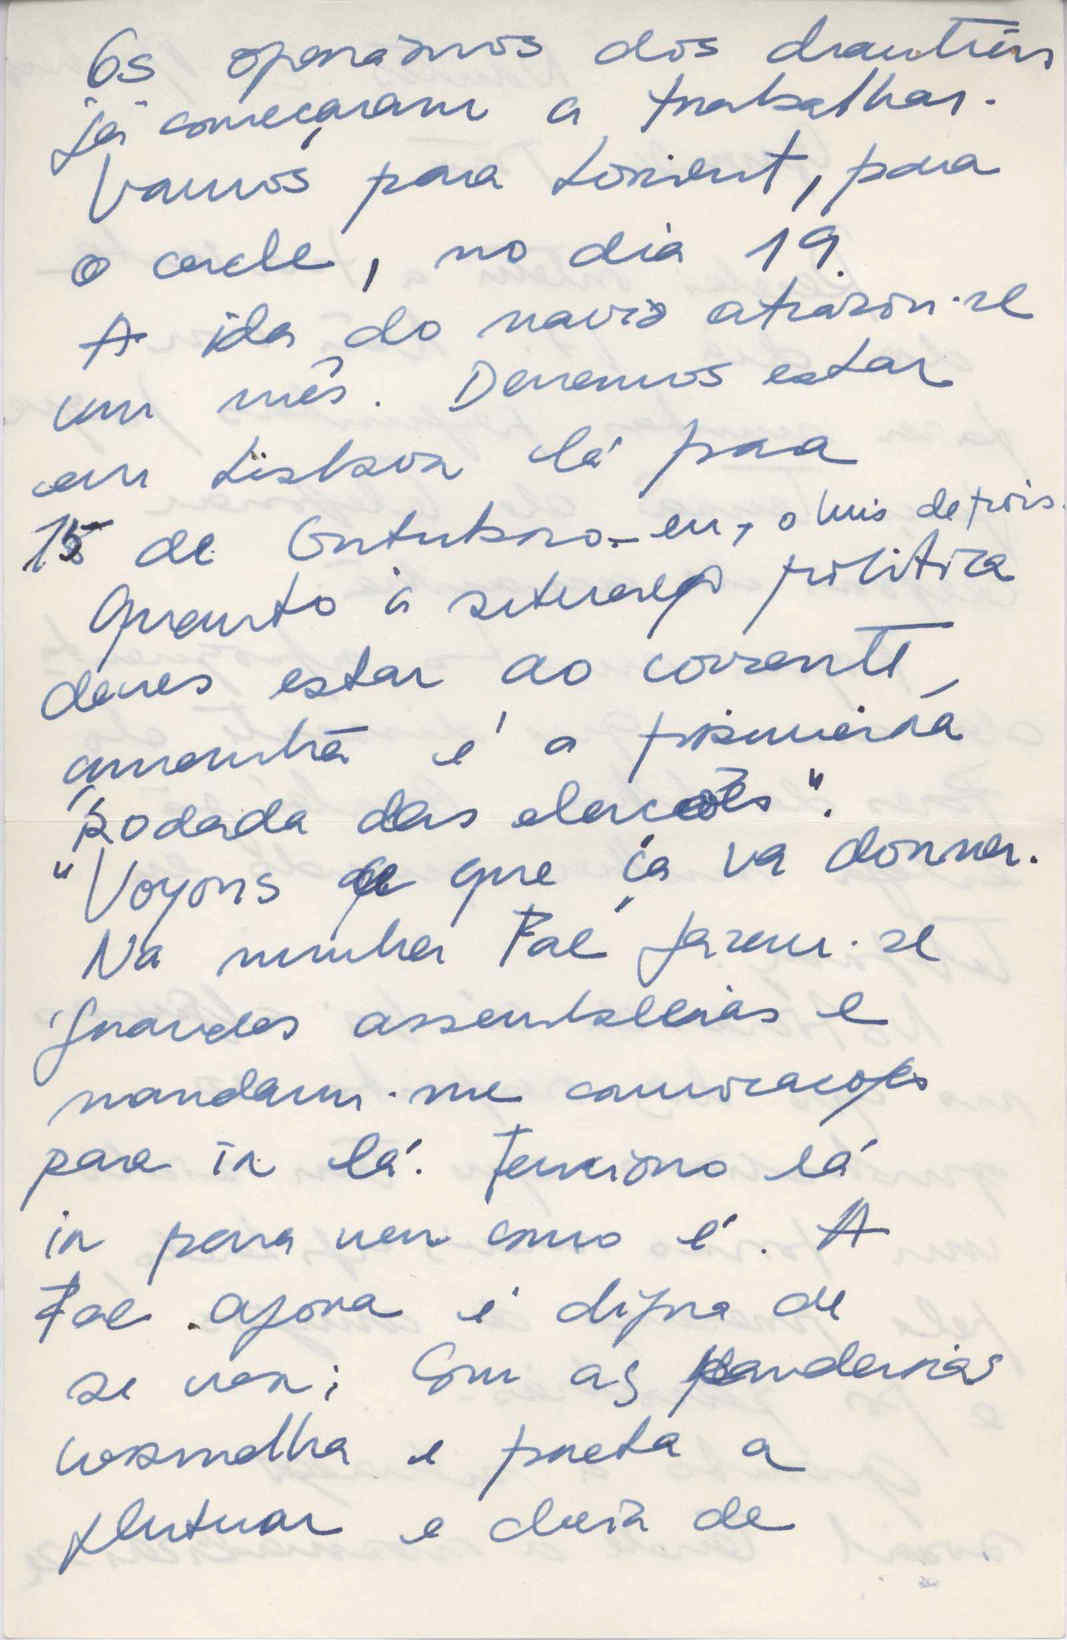 Os operários dos chantiers
já começaram a trabalhar.
Vamos para Lorient, para
o cercle, no dia 19.
A ida do navio atrazou-se
um mês. Devemos estar
em Lisboa lá para
15 de Outubro - eu, o Luis depois.
Quanto à situação politica
deves estar ao corrente,
amanhã é a primeira
"rodada das eleições".
"Voyons ce que ça va donner.
Na minha Fac fazem-se
grandes assembleias e
mandam-me convocações
para ir lá. Tenciono lá
ir para ver como é. A
Fac agora é digna de
se ver; Com as bandeiras
vermelha e preta a
flutuar e cheia de